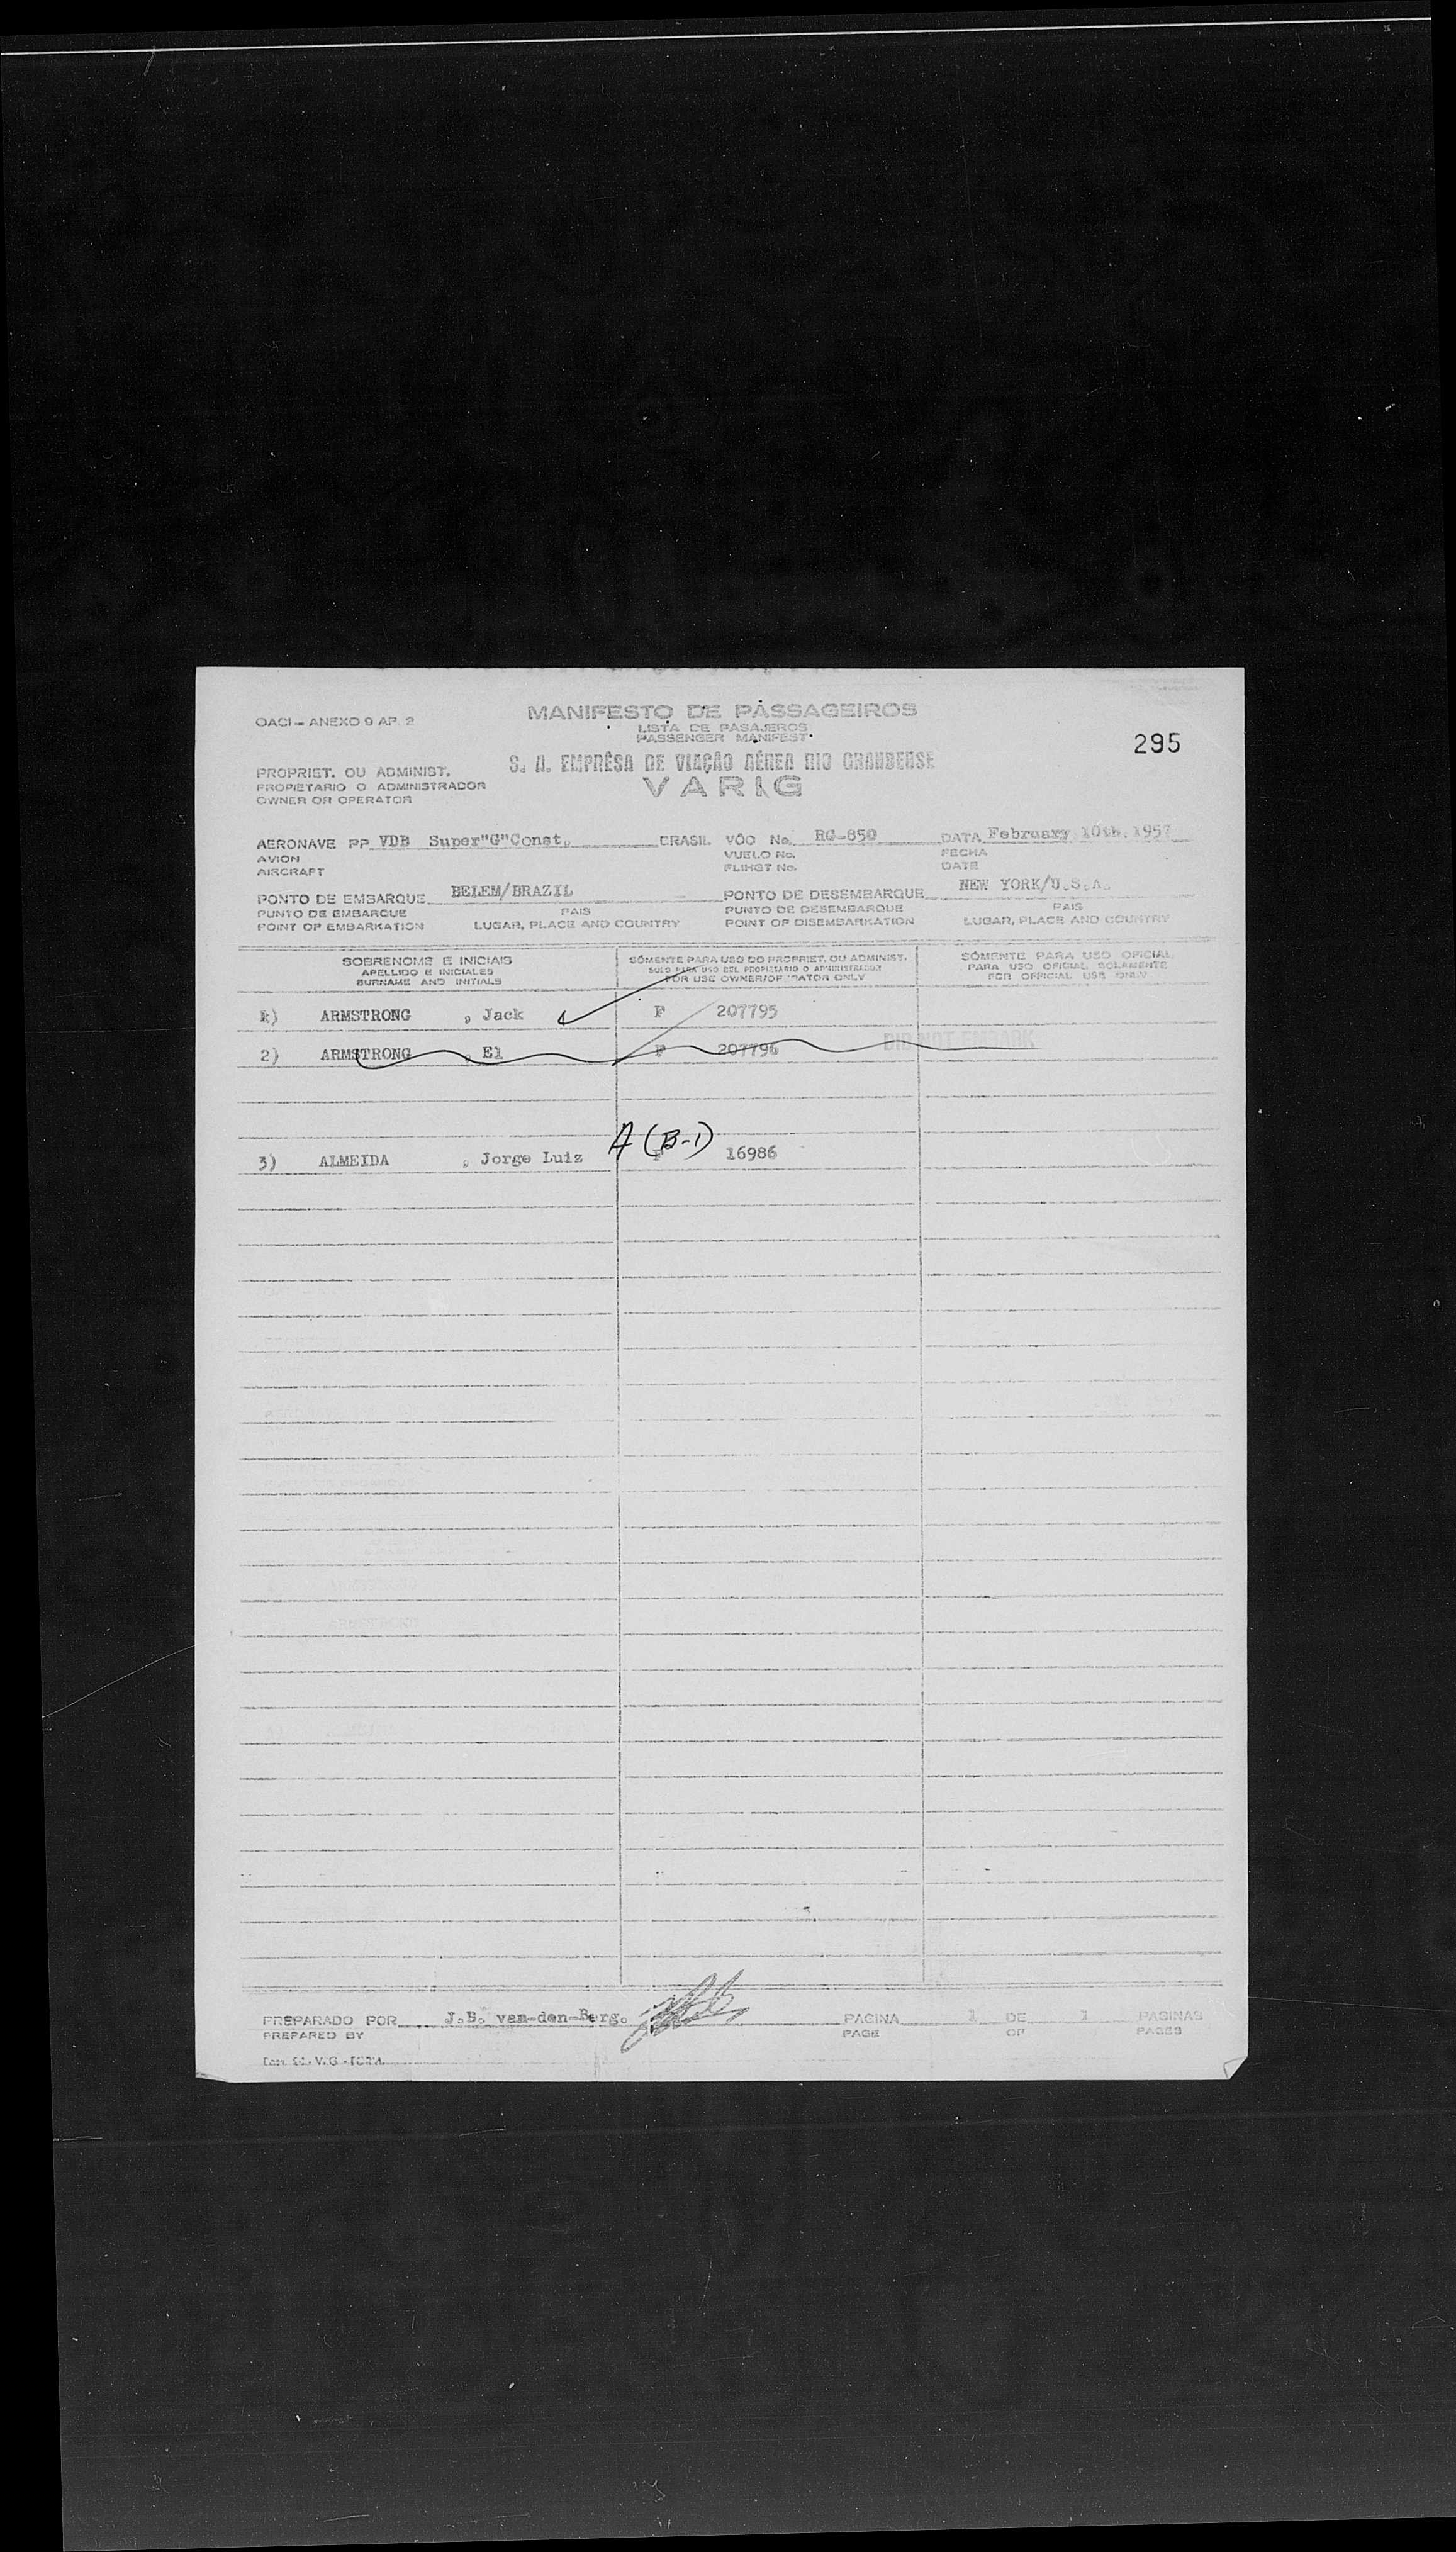 OACI - ANEXO 9 AP. 2
MANIFESTO DE PASSAGEIROS
LISTA DE PASAJEROS
PASSENGER MANIFEST
295
S. A. EMPRÊSA DE VIAÇÃO AÉREA RIO GRANDENSE
VARIG
PROPRIET. OU ADMINIST.
PROPIETARIO O ADMINISTRADOR
OWNER OR OPERATOR
AERONAVE PP VDB Super"G"Const. BRASIL VÔO No. RG-850 DATA February 10th. 1957
AVION VUELO No. FECHA
AIRCRAFT FLIHGT No. DATE
PONTO DE EMBARQUE BELEM/BRAZIL PONTO DE DESEMBARQUE NEW YORK/U.S.A.
PUNTO DE EMBARQUE PAIS PUNTO DE DESEMBARQUE PAIS
POINT OF EMBARKATION LUGAR, PLACE AND COUNTRY POINT OF DISEMBARKATION LUGAR, PLACE AND COUNTRY
SOBRENOME E INICIAIS SÓMENTE PARA USO DO PROPRIET. OU ADMINIST. SÓMENTE PARA USO OFICIAL
APELLIDO E INICIALES SOLO PARA USO DEL PROPIETARIO O ADMINISTRADOR PARA USO OFICIAL SOLAMENTE
SURNAME AND INITIALS FOR USE OWNER/OPERATOR ONLY FOR OFFICIAL USE ONLY
1) ARMSTRONG , Jack F 207795
2) ARMSTRONG , El F 207796 DID NOT EMBARK
A (B-1)
3) ALMEIDA , Jorge Luiz F 16986
PREPARADO POR J.B. van-den-Berg. PAGINA 1 DE 1 PAGINAS
PREPARED BY PAGE OF PAGES